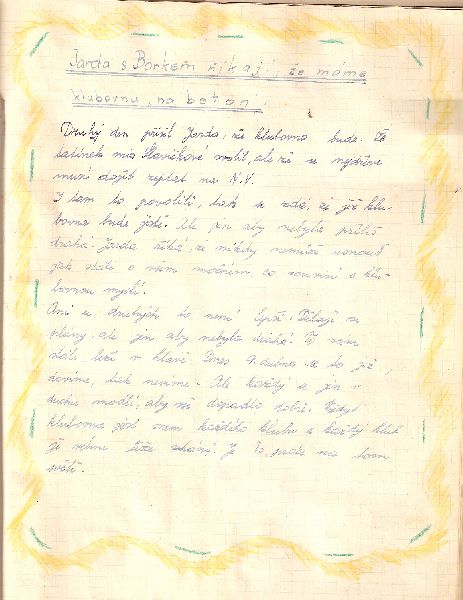 Jarda s Borkem říkají, že máme
klubovnu „na beton“.
Druhý den přišel Jarda, že klubovna bude. Že
tatínek mu volil, ale že se nejdříve
musí dojít zeptat na N.V.
I tam to povolili, tak se zdá, že již klu-
bovna bude jistá. Ale jen aby nebyla příliš
drahá. Jarda říká, že někdy nemůže usnout
jak stále o všem možném co souvisí s klu-
bovnou myslí.
Ani u druhých to není lepší. Dělají se
plány, ale jen aby nebyla drahá. To nám
stále leží v hlavě. Dnes 9. dubna se to již
dovíme, tak nevíme. Ale každý se jen v
duchu modlí, aby vše dopadlo dobře. Vždyť
klubovna jest snem každého klubu a každý klub
ji velmi těžce shání. Je to na tom
světě.